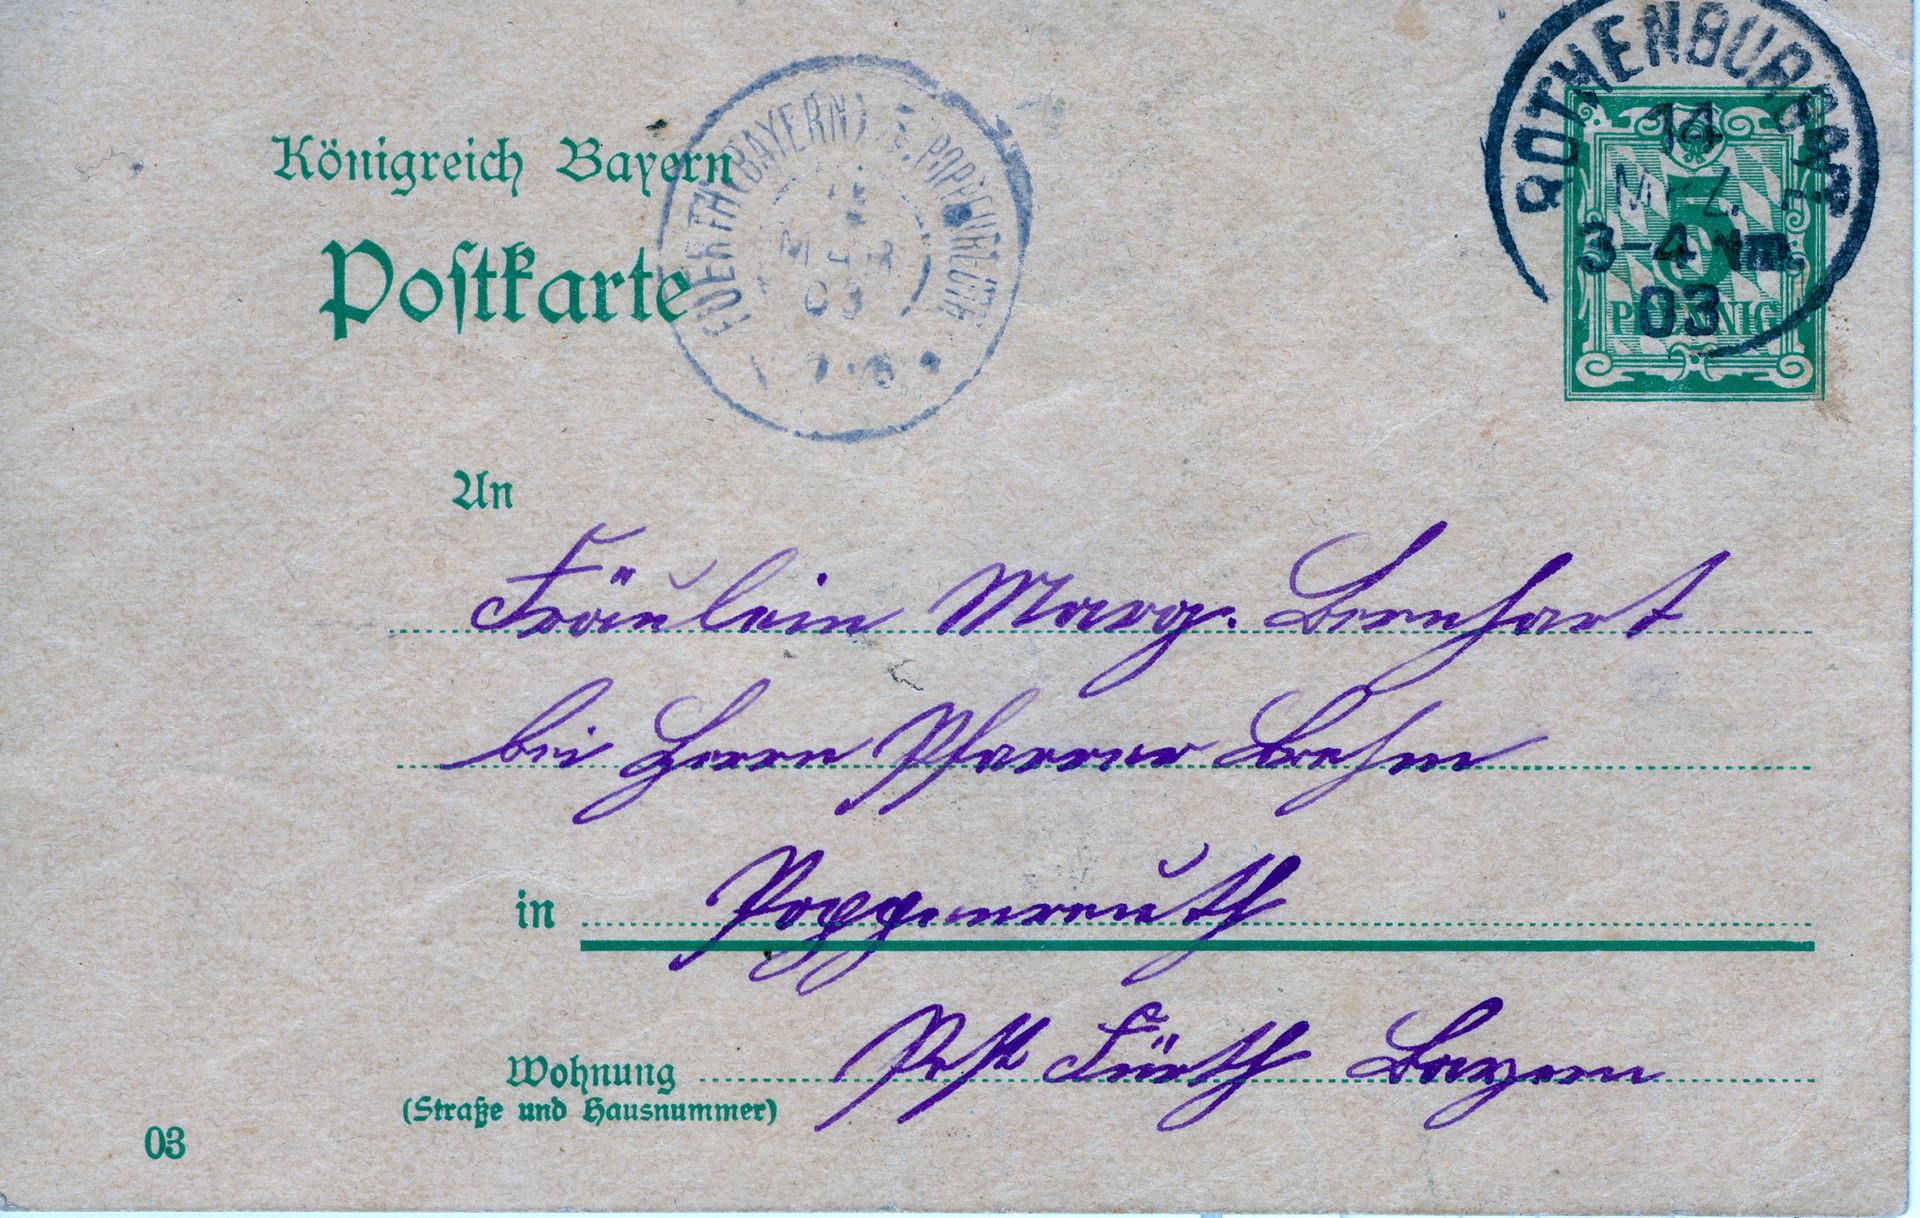 ROTHENBURG
14
MRZ.
3-4 Nm.
03
5
PFENNIG
FUERTH (BAYERN) POPPENREUTH
MAR
03
Königreich Bayern
Postkarte
An
Fräulein Marg. Bernhart
bei Herrn Pfarrer Brehm
in Poppenreuth
Wohnung Post Fürth Bayern
(Straße und Hausnummer)
03